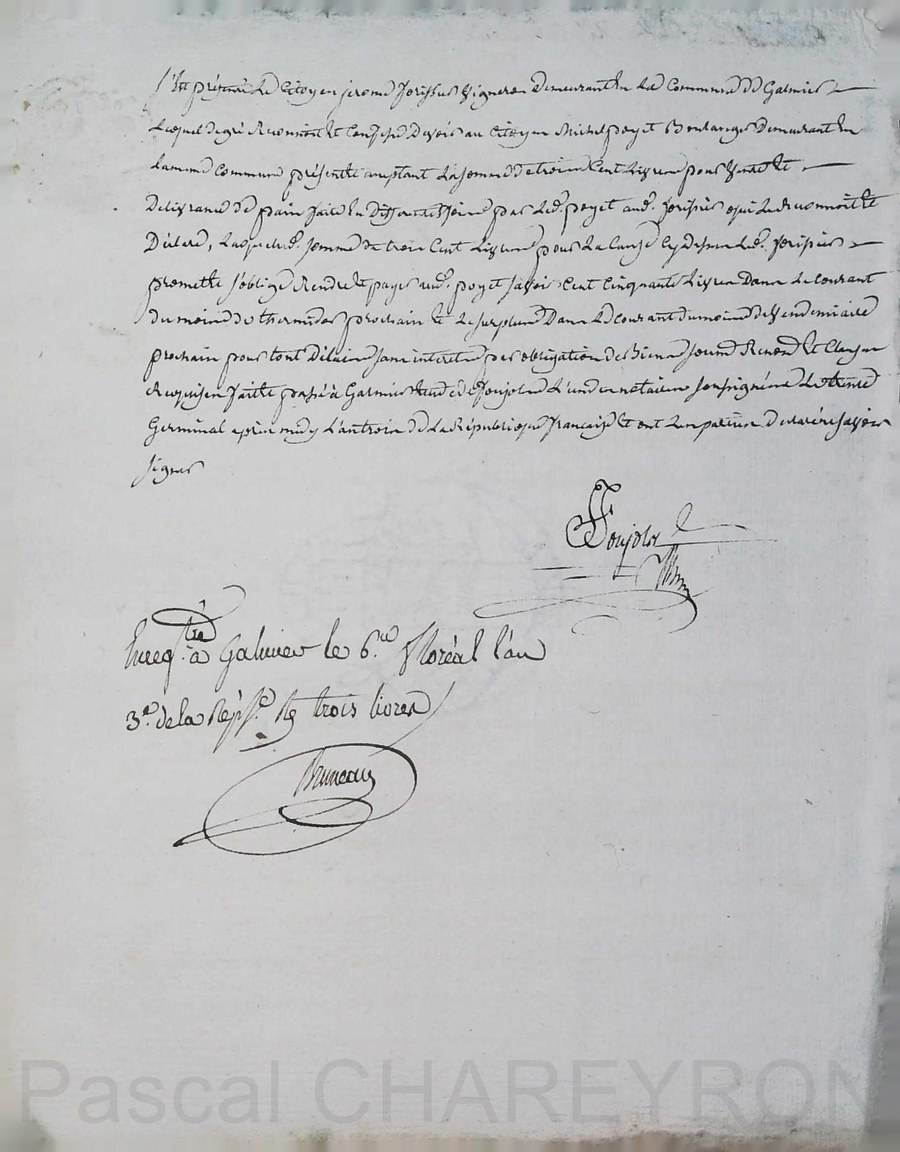 S'est présenté Le Citoyen jerome forissier Vigneron demeurant En La Commune de Galmier
Lequel de gré Reconnoit et Confesse Devoir au Citoyen Michel poyet Boulanger Demeurant En
La meme Commune présent et acceptant La somme de trois Cent Livres pour Vente et
Delivrance de pain faite En Differentes fois par Led. poyet aud. forissier qui Le Reconnoit et
Déclare, Laquelle d. somme de trois Cent Livres pour La Cause Cy dessus Led. forissier
promet et s'oblige Rendre et payer aud. poyet savoir Cent Cinquante Livres Dans Le Courant
du mois de thermidor prochain et Le surplus Dans Le Courant du mois de Vendemiaire
prochain pour tout Délais sans interets par obligation de Biens soumis Renond. et Clauses
Requises fait et passé à Galmier Etude de Poujol L'un des notaires soussignés Le trente
Germinal après midy L'an trois de La République française Et ont Les parties declaré savoir
signer
Poujol
Enregtré à Galmier le 6.me floréal l'an
3.e de la Rép.e R trois livres
Bruneau
Pascal CHAREYRON